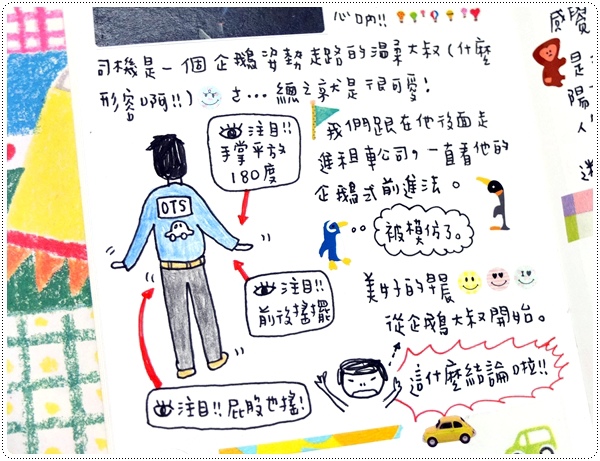 心吶!!
司機是一個企鵝姿勢走路的溫柔大叔(什麼
形容啊!!) ㄜ...總之就是很可愛!
注目!!
手掌平放
180度
我們跟在他後面走
進租車公司,一直看他的
企鵝式前進法。
OTS
被模仿了。
注目!!
前後搖擺
美好的早晨
從企鵝大叔開始。
這什麼結論啦!!
注目!!屁股也搖!
感覺
是
陽
人